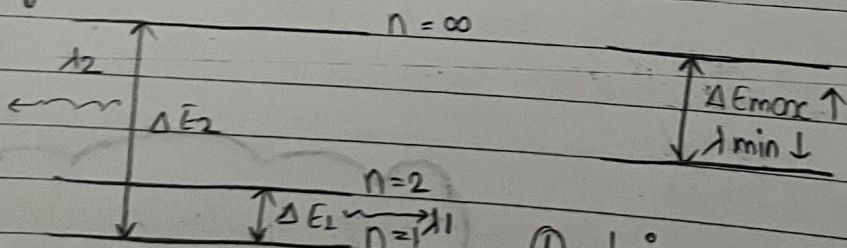 n = ∞
λ2
ΔE2
ΔEmax ↑
λmin ↓
n=2
ΔE1 λ1
n=1